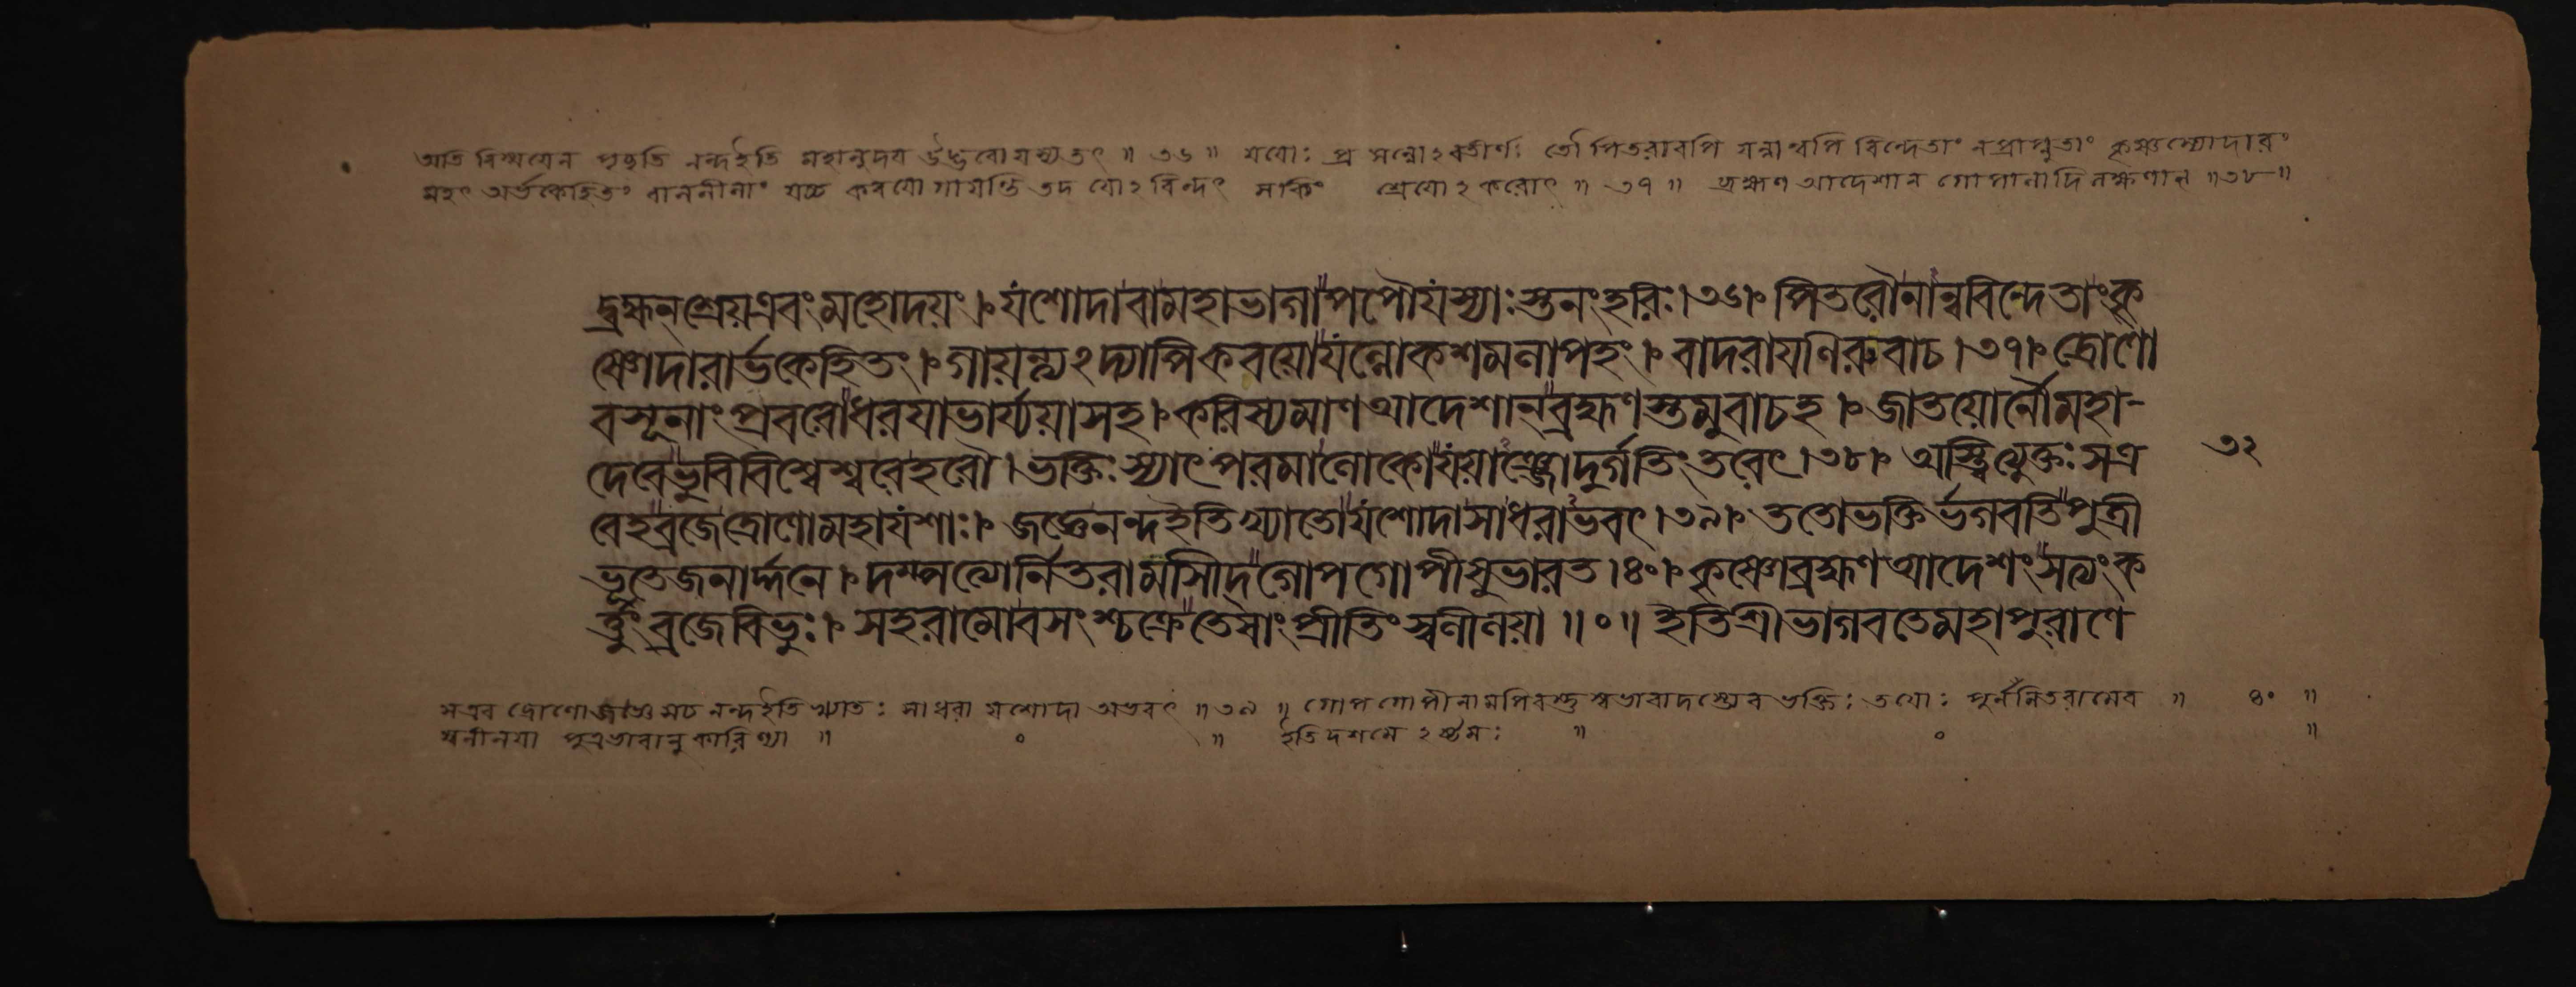 অতি বিস্ময়েন পৃচ্ছতি নন্দইতি মহানুদয় উদ্ভবোযস্যতৎ ॥ ৩৬ ॥ যয়োঃ প্রসন্নোঽবতীর্ণঃ তৌ পিতরাবপি যন্নান্বপি বিন্দেতাং নপ্রাপ্নুতাং কৃষ্ণস্যোদারং
মহৎ অর্ভকেহিতং বাললীলাং যচ্চ কবয়োগায়ন্তি তদ যোঽবিন্দৎ সকিং শ্রেয়োঽকরোৎ ॥ ৩৭ ॥ ব্রহ্মণ আদেশান গোপালাদিলক্ষণান্ ॥৩৮॥
দ্ব্রহ্মন্‌শ্রেয়এবংমহোদয়ং।যশোদাবামহাভাগাপপৌযস্যাঃস্তনংহরিঃ।৩৬।পিতরৌনান্ববিন্দেতাংকৃ
ষ্ণোদারার্ভকেহিতং।গায়ন্ত্যঽদ্যাপিকবয়োযল্লোকশমলাপহং।বাদরায়ণিরুবাচ।৩৭।দ্রোণো
বসূনাংপ্রবরোধরয়াভার্য্যয়াসহ।করিষ্যমাণআদেশান্‌ব্রহ্মণস্তমুবাচহ।জাতয়োর্নৌমহা-
দেবেভুবিবিশ্বেশ্বরেহরৌ।ভক্তিঃস্যাৎপরমালোকেযয়াঞ্জোদুর্গতিংতরেৎ।৩৮।অস্ত্বিত্যুক্তঃসএ ৩২
বেহব্রজেদ্রোণোমহাযশাঃ।জজ্ঞেনন্দইতিখ্যাতোযশোদাসাধরাভবৎ।৩৯।ততোভক্তির্ভগবতিপুত্রী
ভূতেজনার্দ্দনে।দম্পত্যোর্নিতরামাসীদ্‌গোপগোপীষুভারত।৪০।কৃষ্ণোব্রহ্মণআদেশংসত্যংক
র্ত্তুংব্রজেবিভুঃ।সহরামোবসংশ্চক্রেতেষাংপ্রীতিংস্বলীলয়া॥০॥ইতিশ্রীভাগবতেমহাপুরাণে
সএব দ্রোণোজজ্ঞে সচ নন্দইতি খ্যাতঃ সাধরা যশোদা অভবৎ ॥৩৯॥ গোপগোপীনামপিবস্তুস্বভাবাদস্ত্যেব ভক্তিঃ তয়োঃ পুনর্নিতরামেব ॥ ৪০ ॥
স্বলীলয়া পুত্রভাবানুকারিণ্যা ॥ ০ ॥ ইতিদশমে ঽষ্টমঃ ॥ ০ ॥